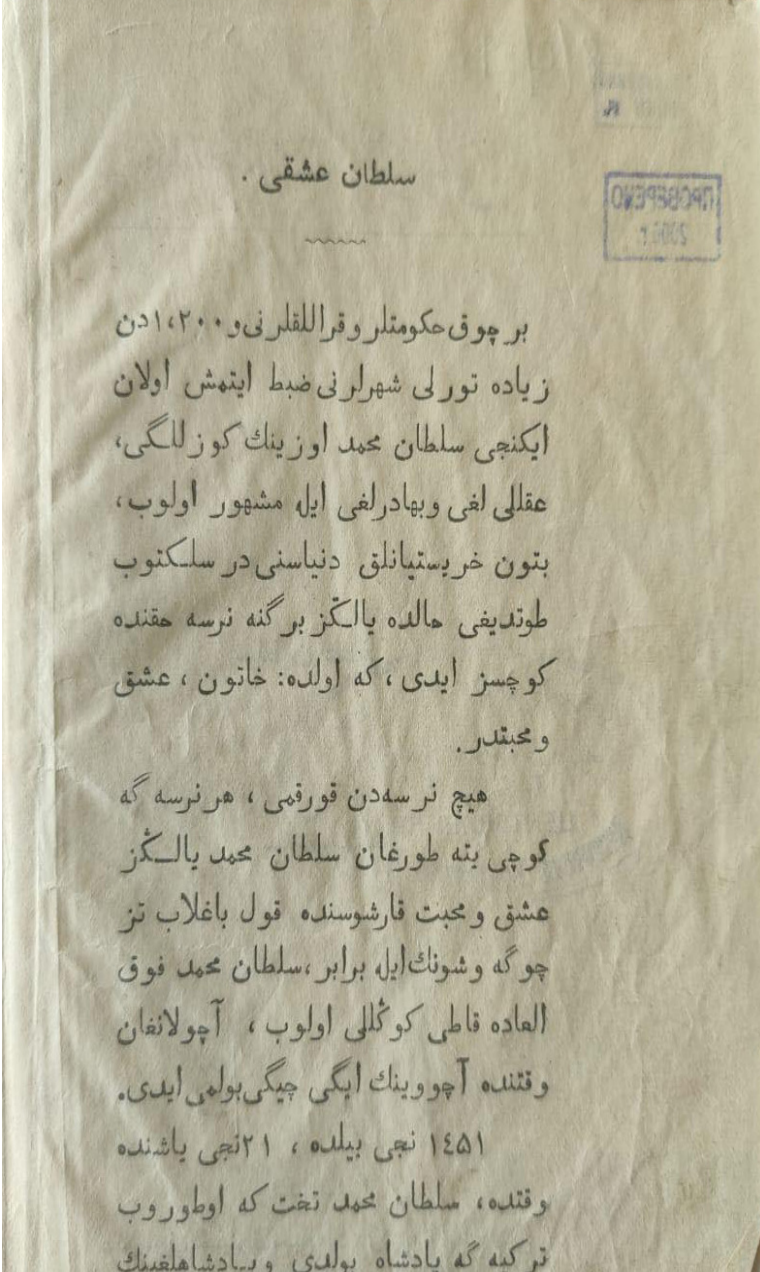 سلطان عشقی .
بر چوق حکومتلر و قراللقلرنی و ۱،۲۰۰ دن
زیاده تورلی شهرلرنی ضبط ایتمش اولان
ایکنجی سلطان محمد اوزینك کوزللگی،
عقللی لغی و بهادرلغی ایله مشهور اولوب،
بتون خریستیانلق دنیاسنی در سلکتوب
طوتدیغی حالده یالڭز بر گنه نرسه حقنده
کوچسز ایدی ، که اولده: خاتون ، عشق
و محبتدر.
هیچ نرسه‌دن قورقمی ، هر نرسه گه
کوچی یته طورغان سلطان محمد یالڭز
عشق و محبت قارشوسنده قول باغلاب تز
چوگه و شونك ایله برابر ،سلطان محمد فوق
العاده قاطی کوڭللی اولوب ، آچولانغان
وقتنده آچووینك ایگی چیگی بولمی ایدی.
۱٤۵۱ نجی ییلده ، ۲۱نجی یاشنده
وقتده، سلطان محمد تخت که اوطوروب
ترکیه گه پادشاه بولدی و پادشاهلغینك
ПРОВЕРЕНО